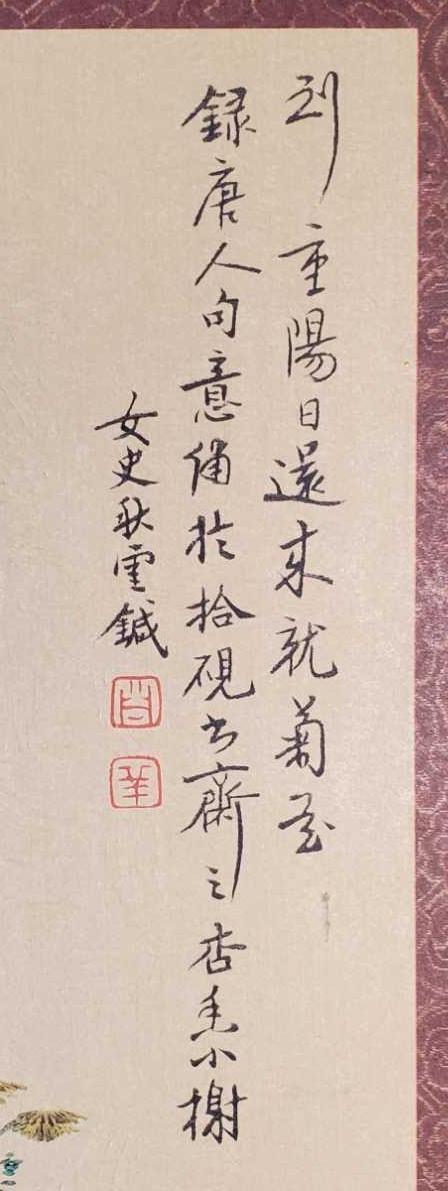 到重陽日還來就菊花
録唐人句意備於拾硯书齋之杏香小榭
女史雲鍼